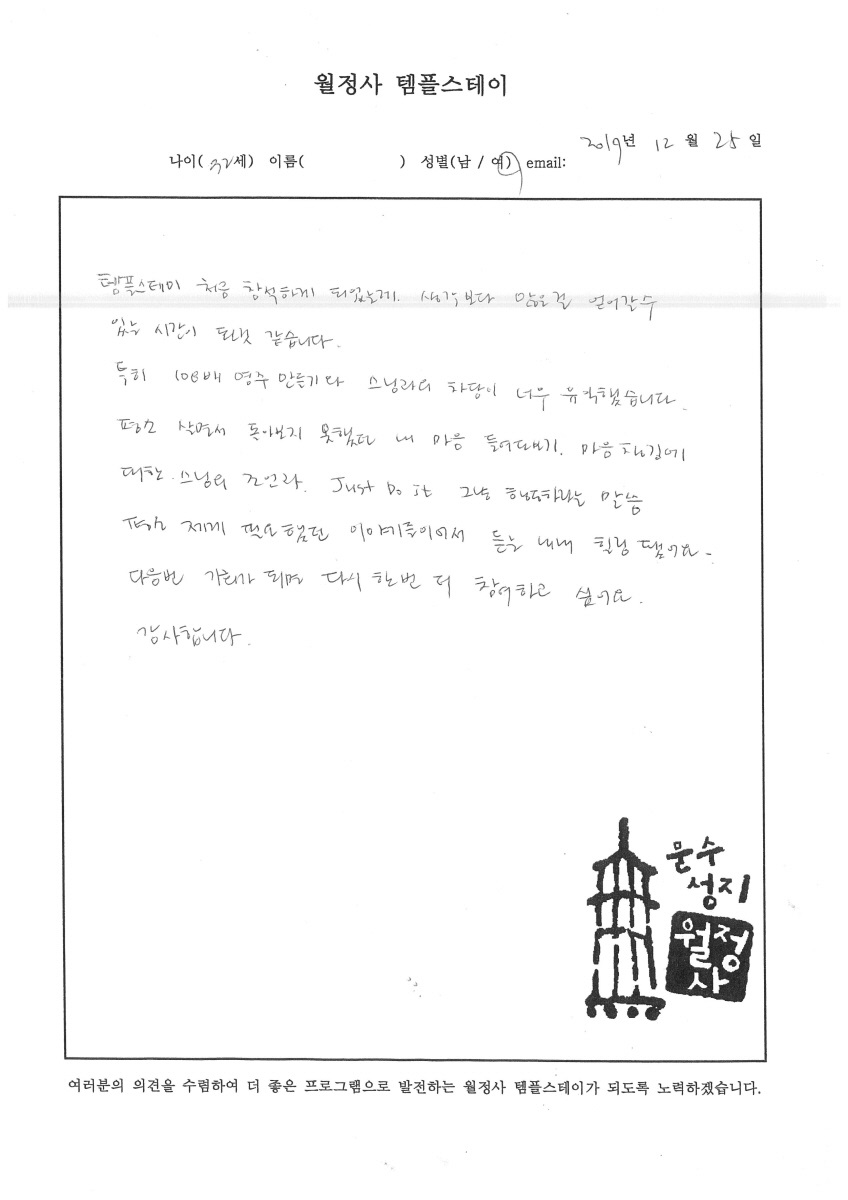 월정사 템플스테이
2019년 12월 25일
나이( 32세) 이름( ) 성별(남 / 여) email:
템플스테이 처음 참석하게 되었는데. 생각보다 많은걸 얻어갈수
있는 시간이 되었 같습니다.
특히 108배 염주 만들기와 스님과의 차담이 너무 유익했습니다.
평소 살면서 돌아보지 못했던 내 마음 들여다보기. 마음챙김에
대한 스님의 조언과. Just Do It 그냥 행동하라는 말씀
평소 제게 필요했던 이야기들이어서 듣는 내내 힐링 됐어요.
다음번 기회가 되면 다시 한번 더 참여하고 싶어요.
감사합니다.
문수
성지
월정
사
여러분의 의견을 수렴하여 더 좋은 프로그램으로 발전하는 월정사 템플스테이가 되도록 노력하겠습니다.